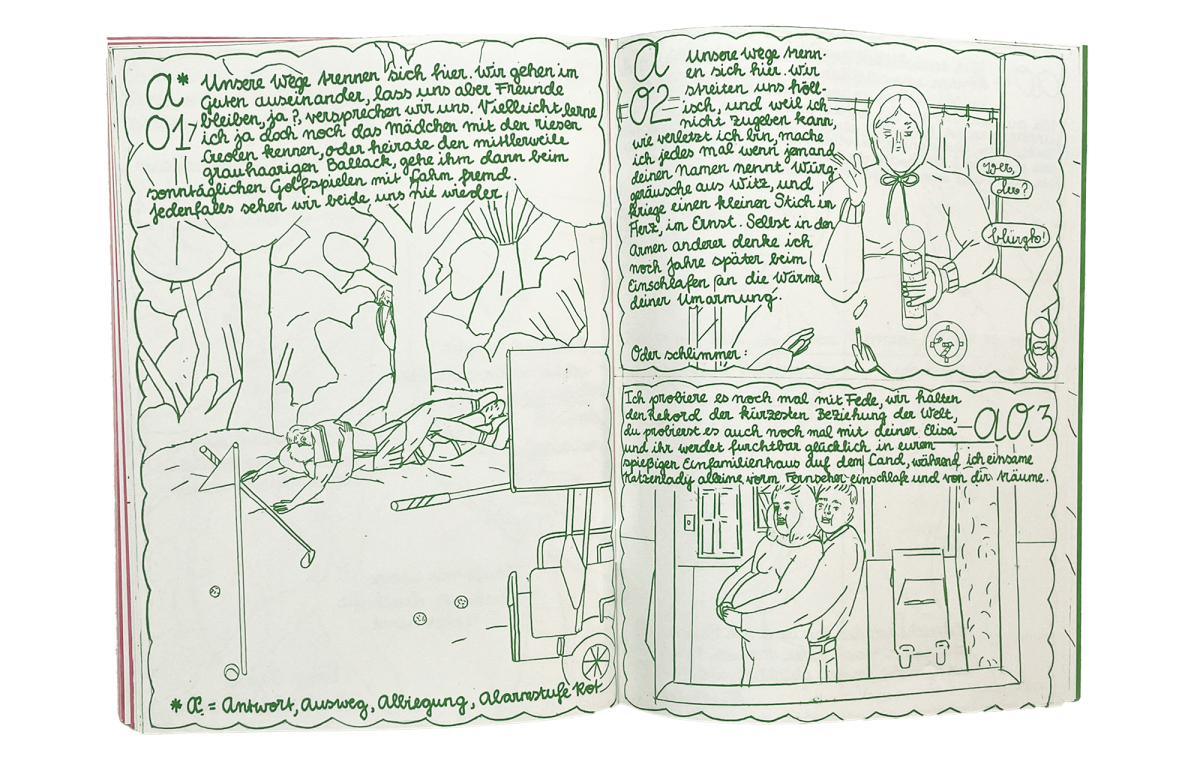 a* Unsere Wege trennen sich hier. Wir gehen im
01 Guten auseinander, lass uns aber Freunde
bleiben, ja?, versprechen wir uns. Vielleicht lerne
ich ja doch noch das Mädchen mit den riesen
Creolen kennen, oder heirate den mittlerweile
grauhaarigen Ballack, gehe ihm dann beim
sonntäglichen Golfspielen mit Lahm fremd.
Jedenfalls sehen wir beide uns nie wieder.
* a. = Antwort, Ausweg, Abbiegung, Alarmstufe Rot.
a
02
Unsere Wege trenn-
en sich hier. Wir
streiten uns höll-
isch, und weil ich
nicht zugeben kann,
wie verletzt ich bin, mache
ich jedes mal wenn jemand
deinen Namen nennt Würg-
geräusche aus Witz, und
kriege einen kleinen Stich im
Herz, im Ernst. Selbst in den
Armen anderer denke ich
noch Jahre später beim
Einschlafen an die Wärme
deiner Umarmung.
Oder schlimmer:
wer,
der?
blürgh!
a03
Ich probiere es noch mal mit Fede, wir halten
den Rekord der kürzesten Beziehung der Welt,
du probierst es auch noch mal mit deiner Elisa
und ihr werdet furchtbar glücklich in eurem
spießigen Einfamilienhaus auf dem Land, während ich einsame
Katzenlady alleine vorm Fernseher einschlafe und von dir träume.